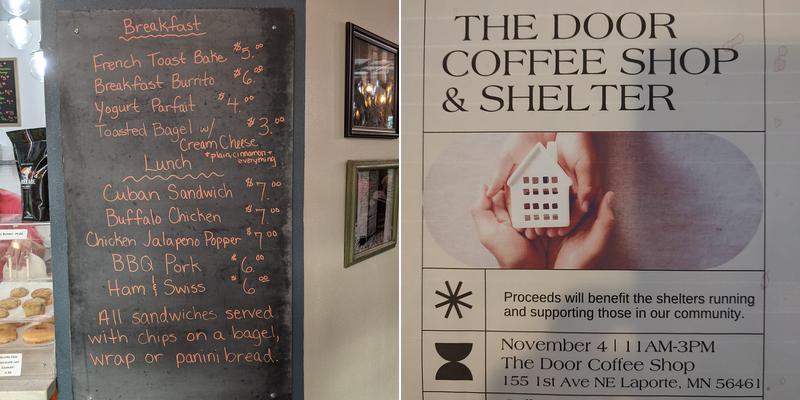 Breakfast
French Toast Bake $5.00
Breakfast Burrito $6.00
Yogurt Parfait $4.00
Toasted Bagel w/ $3.00
Cream Cheese
*plain, cinnamon +
everything
Lunch
Cuban Sandwich $7.00
Buffalo Chicken $7.00
Chicken Jalapeno Popper $7.00
BBQ Pork $6.00
Ham & Swiss $6.00
All sandwiches served
with chips on a bagel,
wrap or panini bread.
THE DOOR
COFFEE SHOP
& SHELTER
Proceeds will benefit the shelters running
and supporting those in our community.
November 4 | 11AM-3PM
The Door Coffee Shop
155 1st Ave NE Laporte, MN 56461